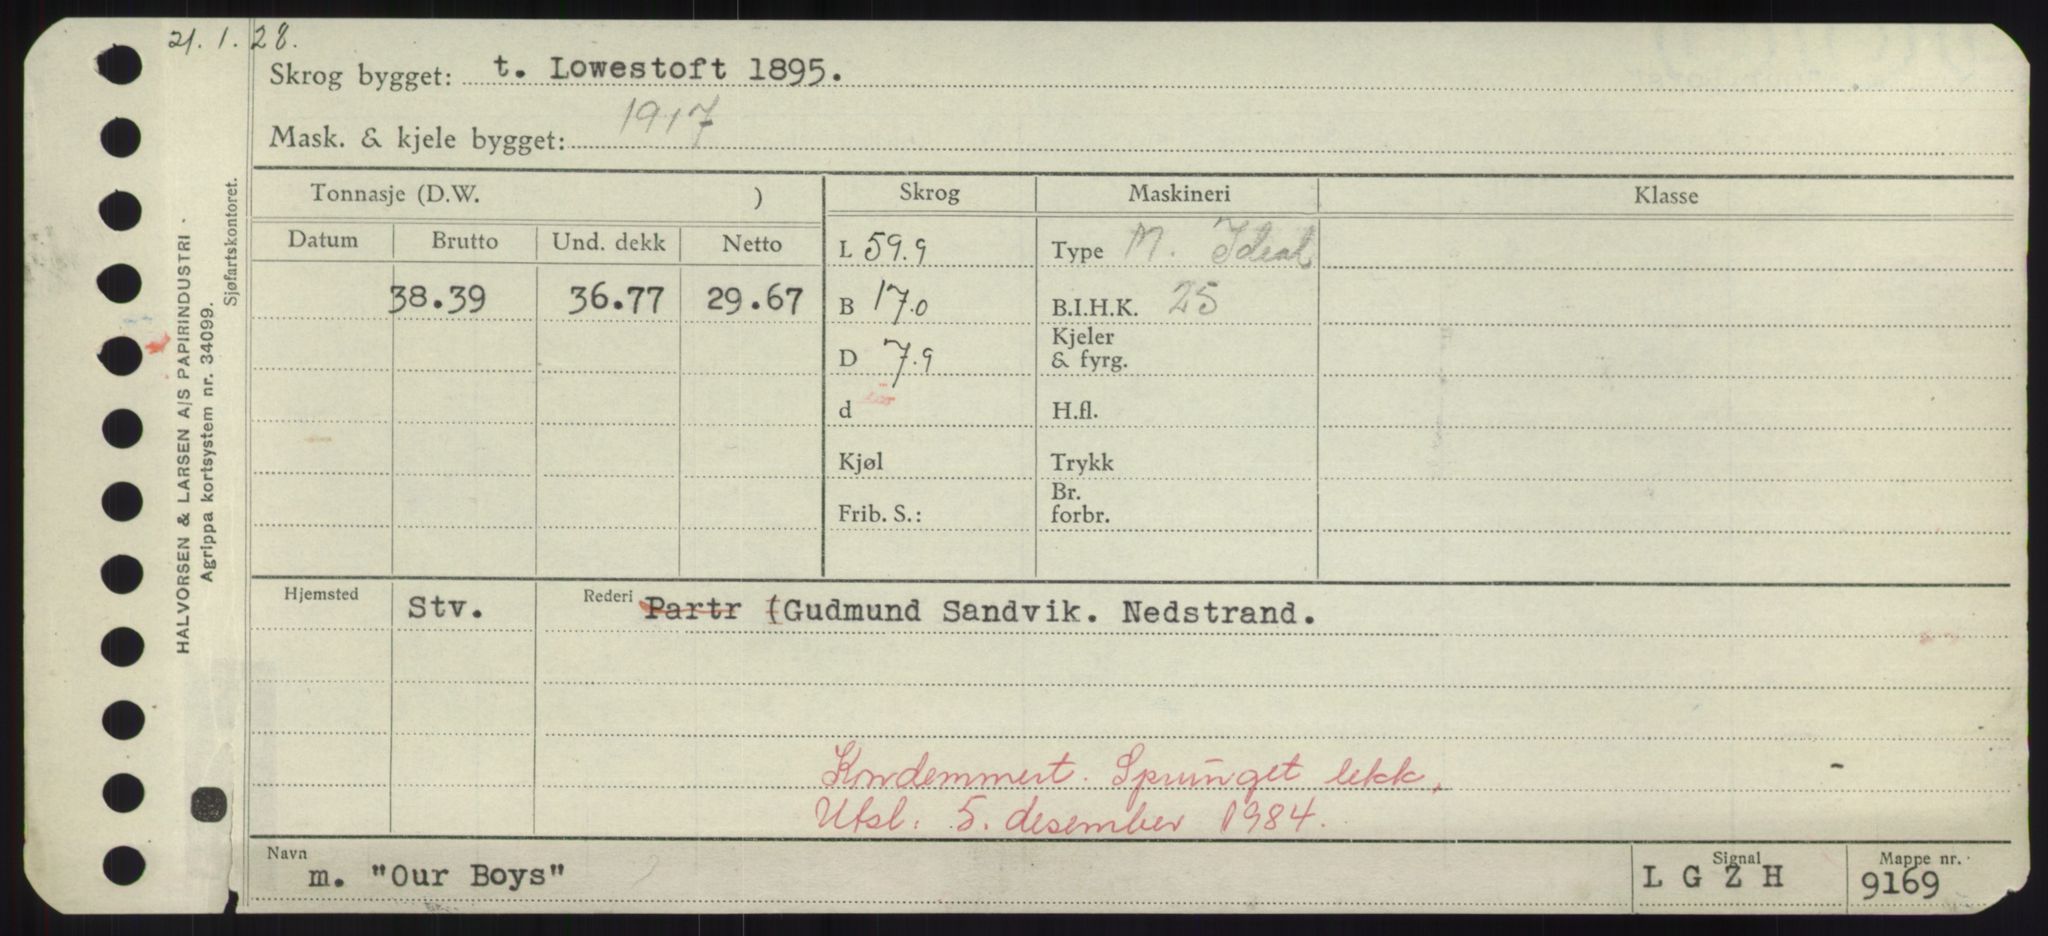 21. 1. 28.
Skrog bygget: t. Lowestoft 1895.
Mask. & kjele bygget: 1917
Tonnasje (D.W. ) Skrog Maskineri Klasse
Datum Brutto Und. dekk Netto L 59.9 Type M. Ideal
38.39 36.77 29.67 B 17.0 B.I.H.K. 25
D 7.9 Kjeler & fyrg.
d H.fl.
Kjøl Trykk
Frib. S.: Br. forbr.
Hjemsted Stv. Rederi Partr (Gudmund Sandvik. Nedstrand.
Kondemmert. Sprunget lekk,
Utsl. 5. desember 1984.
Navn Signal Mappe nr.
m. "Our Boys" L G Z H 9169
HALVORSEN & LARSEN A/S PAPIRINDUSTRI
Agrippa kortsystem nr. 34099.
Sjøfartskontoret.